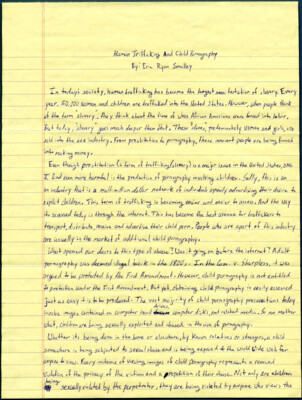 Human Trafficking And Child Pornography
By: Erin Ryan
In today's society, human trafficking has become the largest manifestation of slavery. Every
year, 50,000 women and children are trafficked into the United States. However, when people think
of the term slavery, they think about the time of when African Americans were forced into labor,
but today, 'slavery' goes much deeper than that. These 'slaves,' predominately women and girls, are
sold into the sex industry. From prostitution to pornography, these innocent people are being forced
into making money.
Even though prostitution (a form of trafficking/slavery) is a major issue in the United States,
I find even more harmful is the production of pornography involving children. Sadly, this is
an industry that is a million dollar network of individuals openly advertising their desire to
exploit children. This form of trafficking is becoming easier and easier to access. And the way
its accessed today is through the internet. This has become the best avenue for traffickers to
transport, distribute, receive and advertise their child porn. People who are apart of this industry,
are usually in the market of additional child pornography.
What opened our doors to this type of abuse? Was it going on before the internet? Adult
pornography was deemed illegal back in the 1800's. In the case v. Sharpless, it was
argued to be protected by the First Amendment. However, child pornography is not entitled
to protection under the First Amendment. But yet, obtaining child pornography is easily accessed
just as easy it is to be produced. The vast majority of child pornography prosecutions today
involve images contained on computer hard drives, computer disks, and related media. So no matter
what, children are being sexually exploited and abused in the view of pornography.
Whether its being done in the home or elsewhere, by known relatives or strangers, a child
somewhere is being subjected to sexual abuse and is being exposed to the world wide web for
anyone to view. Every instance of viewing images of child pornography represents a renewed
violation of the privacy of the victims and a repetition of their abuse. Not only are children
being sexually violated by the perpetrator, they are being violated by anyone who views the